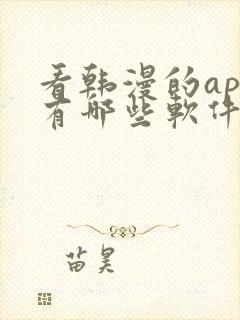 看韩漫的ap
有哪些软件
苗昊